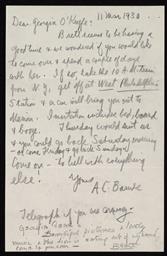 Dear Georgia O'Keeffe: 11 Mar 1930
Brett seems to be having a
good time & we wondered if you would like
to come over & spend a couple of days
with her. If so, take the 10 A.M. train
from N.Y., get off at West Philadelphia
Station & a car will bring you out to
Merion. Invitation includes bed, board
& booze. Thursday would suit us
& you could go back Saturday morning
or come Friday & go back Sunday
Come on - to hell with everything
else!
Yours
A.C. Barnes
Telegraph if you are coming.
Georgia dear
Beautiful pictures & lovely
music & this drive is nothing but
come to
Brett